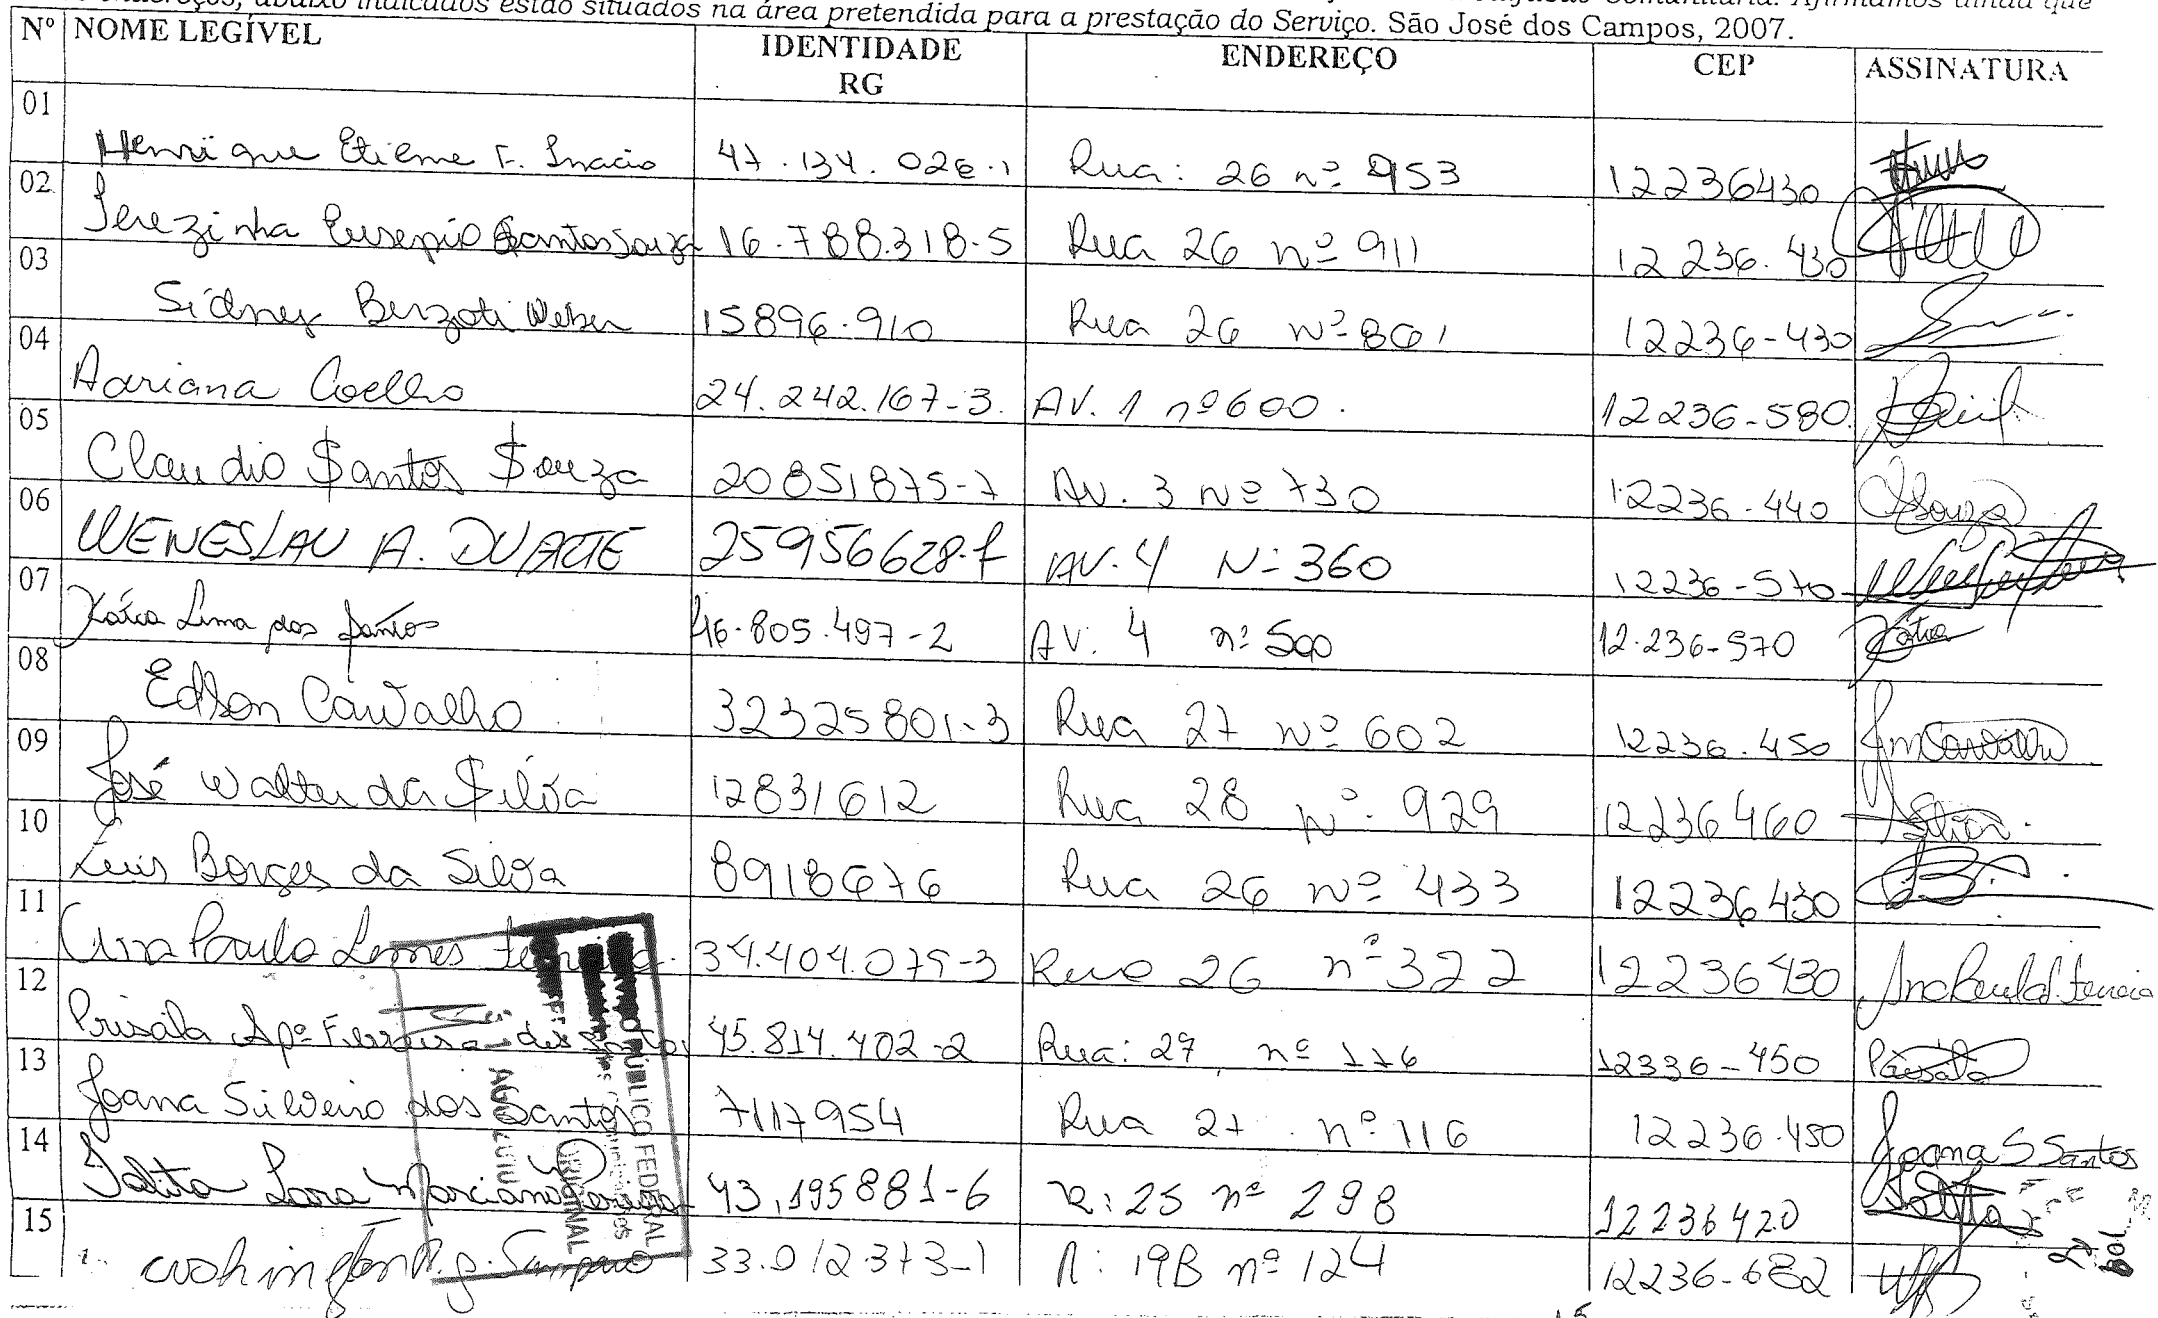 endereços, abaixo indicados estão situados na área pretendida para a prestação do Serviço. São José dos Campos, 2007.
Nº NOME LEGÍVEL IDENTIDADE RG ENDEREÇO CEP ASSINATURA
01 Henrique Etiene F. Inacio 47.134.026.1 Rua: 26 nº 953 12236430
02 Terezinha Eusepio Santos Souza 16.788.318-5 Rua 26 nº 911 12 236.430
03 Sidney Berzoti Weber 15896.910 Rua 26 nº 861 12236-430
04 Adriana Coelho 24.242.167-3. AV. 1 nº 600. 12236-580.
05 Claudio Santos Souza 20851875-7 AV. 3 Nº 730 12236-440 Souza
06 WENESLAU A. DUARTE 25956628-1 AV. 4 Nº 360 12236-570
07 Kátia Lima dos Santos 46.805.497-2 AV. 4 nº 500 12.236-570 Kátia
08 Edson Carvalho 32325801-3 Rua 27 nº 602 12236.450 Carvalho
09 José Walter da Silva 12831612 Rua 28 Nº 929 12236460
10 Luis Borges da Silva 8918676 Rua 26 Nº 433 12236430
11 Ana Paula Lemes Ferreira 34.404.075-3 Rua 26 nº 322 12236430 Ana Paula L. Ferreira
12 Prisila Apª Ferreira dos Santos 45.814.402-2 Rua: 27 nº 176 12336-450
13 Joana Silveiro dos Santos 7117954 Rua 27 nº 116 12236.450 Joana S Santos
14 Talita Lara Marciano Pereira 43.195881-6 R: 25 nº 298 12236420 Talita
15 Washington R. J. Sampaio 33.012373-1 R: 19B nº 124 12236-682
PÚBLICO FEDERAL
ORIGINAL
AGO 2010
15